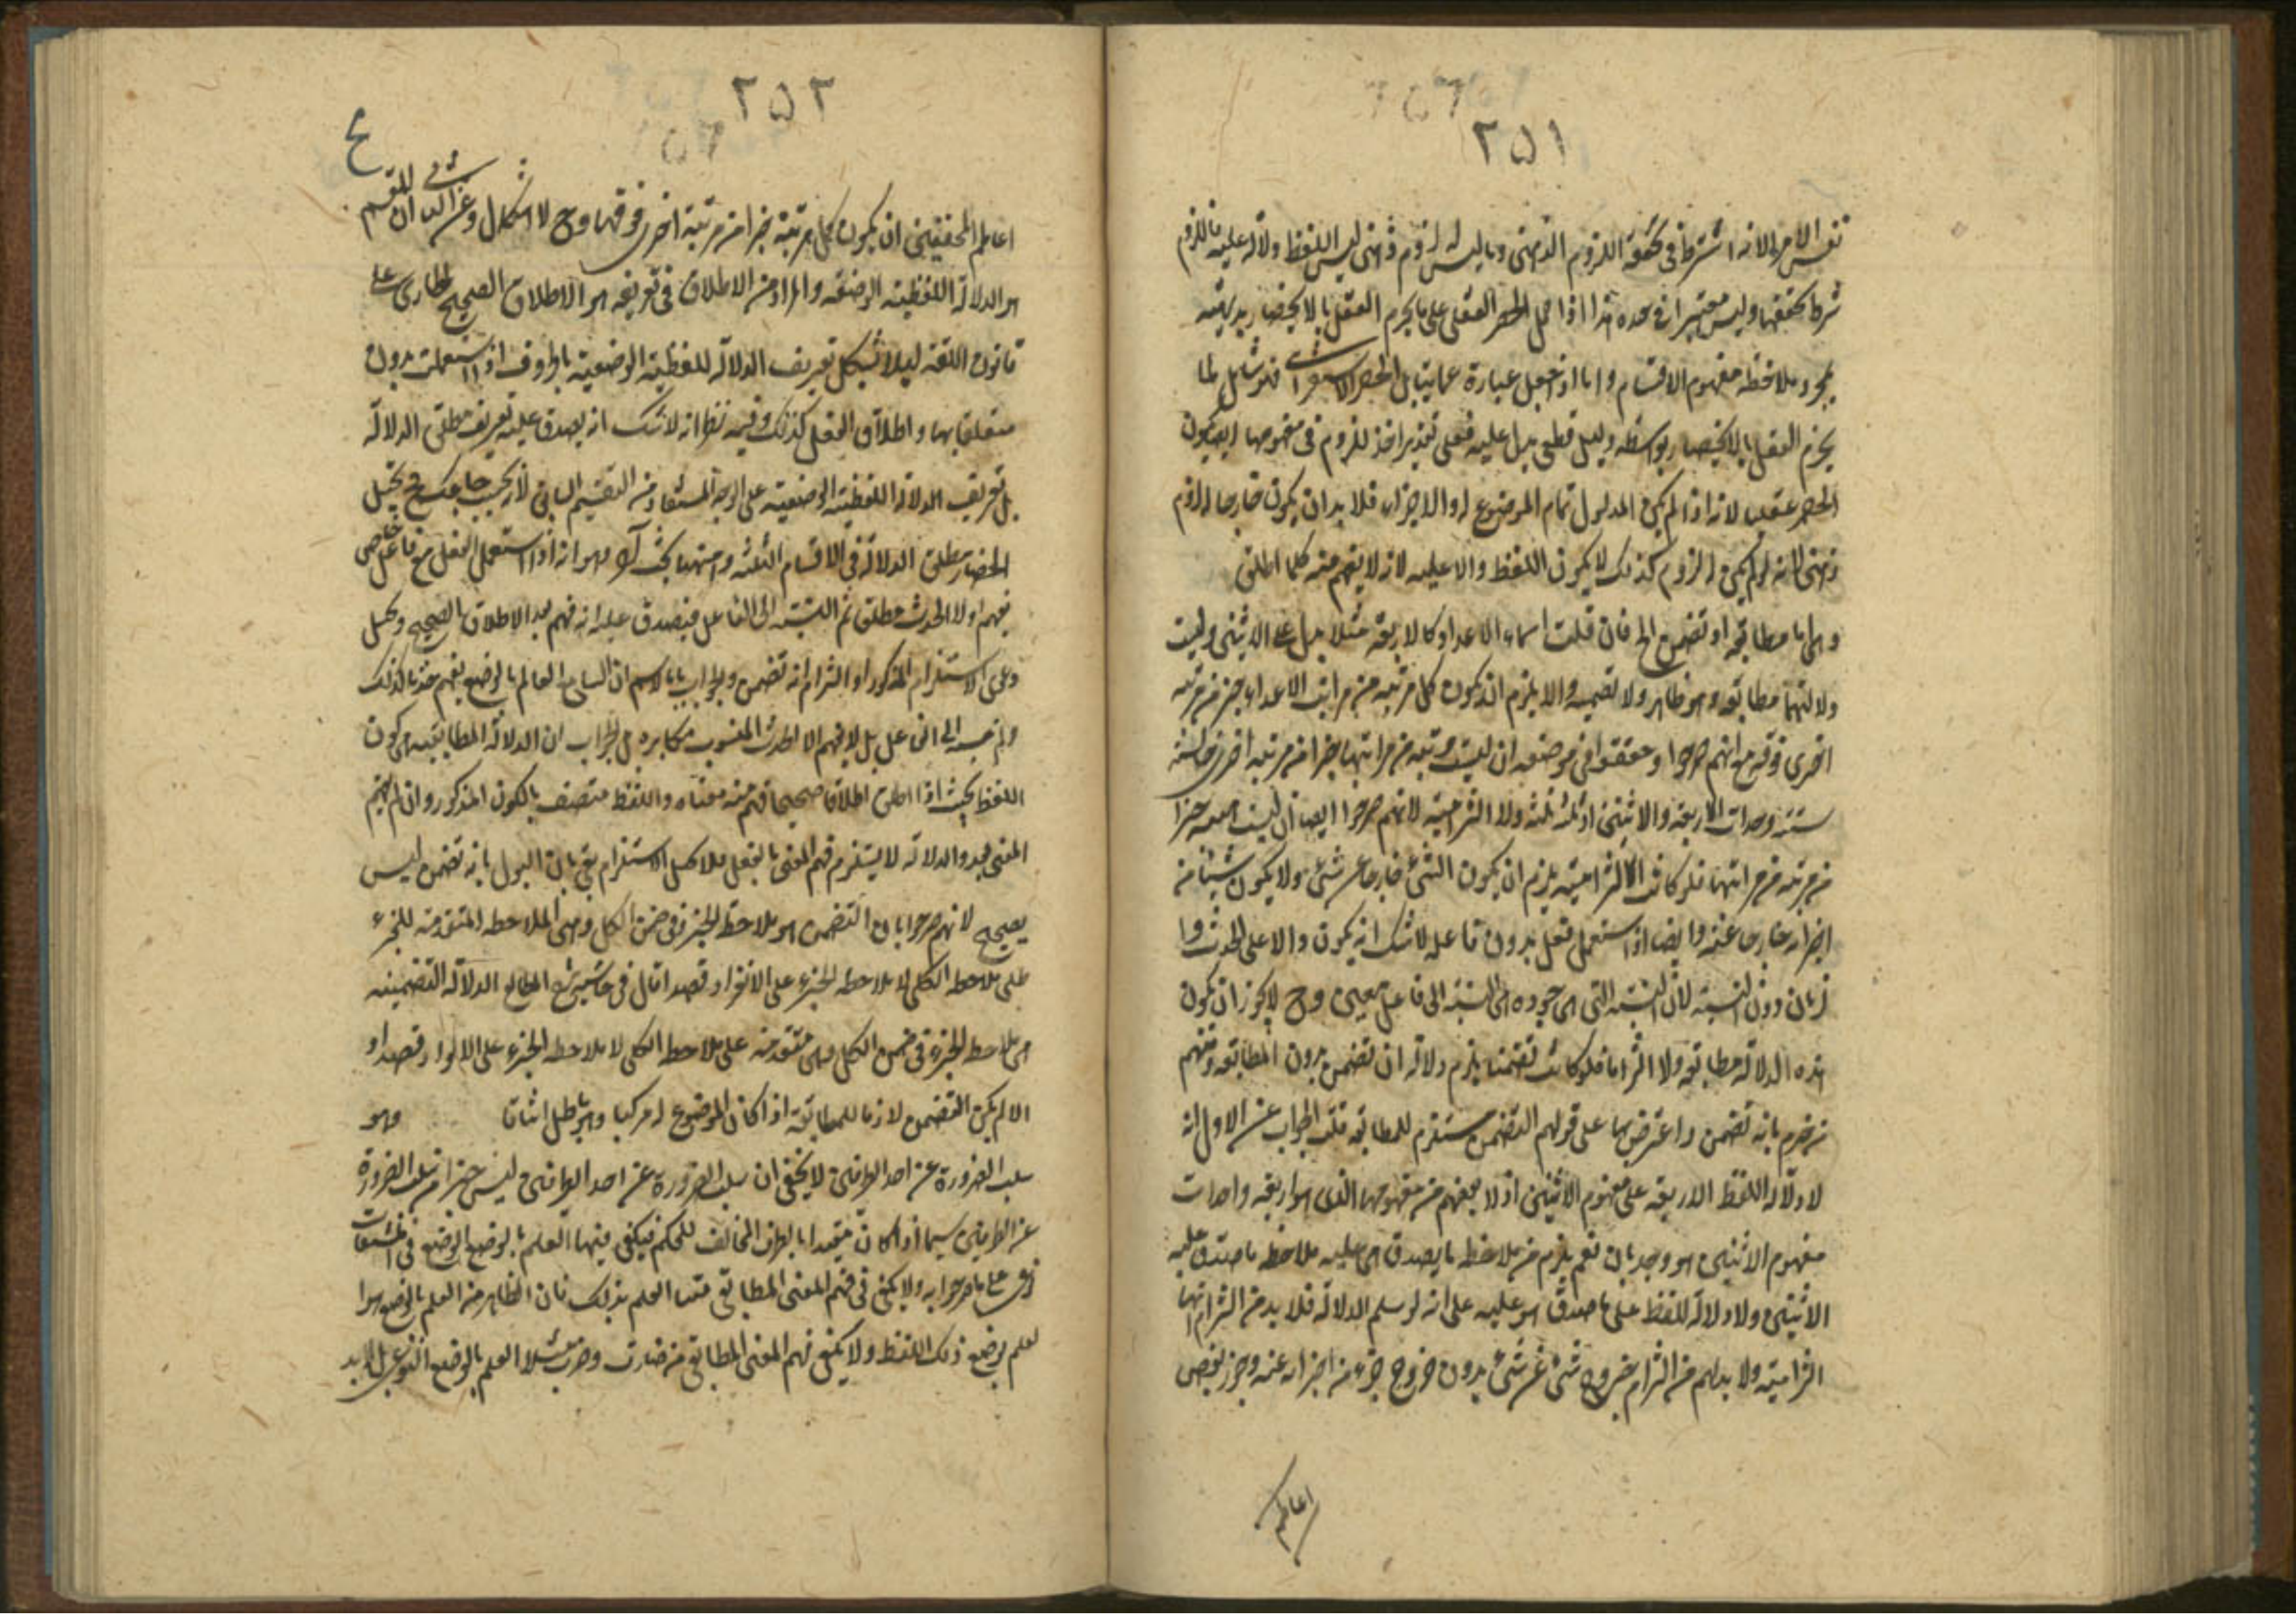 ٢٥١
نفس الامر الا انه اشترط في تحققه اللزوم الذهني وما ليس له لزوم ذهني ليس اللفظ دلالة عليه فاللزوم
شرط تحققها وليس معتبرا في حده هذا اذا حمل الحصر العقلي على ما يجزم العقل بالانحصار بديهة
بمجرد ملاحظة مفهوم الاقسام واما اذا جعل عبارة عما يقابل الحصر الاستقرائي فهو شامل لما
يجزم العقل بالانحصار بواسطة دليل قطعي يدل عليه فعلى تقدير اخذ اللزوم في مفهومها ايضا يكون
الحصر عقليا لانه اذا لم يكن المدلول تمام الموضوع له والاجزاء فلا بد ان يكون خارجا له لزوم
ذهني لانه لو لم يكن له لزوم كذلك لا يكون اللفظ دالا عليه لانه لا يفهم منه كلما اطلق
وهي اما مطابقة او تضمن الخ فان قلت اسماء الاعداد كالاربعة مثلا يدل على الاثنين وليست
دلالتها مطابقة وهو ظاهر ولا تضمنية والا يلزم ان يكون كل مرتبة من مراتب الاعداد جزء من مرتبة
اخرى فوقه مع انهم صرحوا وحققوا في موضعه ان ليست مرتبة من مراتبها جزء من مرتبة اخرى
ستة وحدات لا اربعة والاثنين او ثلثة ثلثة ولا التزامية لانهم صرحوا ايضا ان ليست جزء
من مرتبة من مراتبها فلو كانت التزامية يلزم ان يكون الشئ خارجا عن شئ ولا يكون شيئا من
اجزائه خارجا عنه وايضا اذا استعمل فعل بدون فاعله لا شك انه يكون دالا على الحدث و
زمان دون النسبة لان النسبة التي هي جزؤه هي النسبة الى فاعل معين وح لا يجوز ان يكون
هذه الدلالة مطابقة ولا التزاما فلو كانت تضمنا يلزم دلالة ان تضمن بدون المطابقة ومنهم
من جزم بانه تضمن واعترض بها على قولهم التضمن مستلزم للمطابقة قلت الجواب عن الاول انه
لا دلالة اللفظ الاربعة على مفهوم الاثنين اذ لا يفهم من مفهومها الذي هو اربعة واحدات
مفهوم الاثنين هو وحدتان نعم يلزم من ملاحظة ما يصدق هي عليه ملاحظة ما صدق عليه
الاثنين ولا دلالة للفظ على ما صدق هو عليه على انه لو سلم الدلالة فلا بد من التزام انها
التزامية ولا بد لهم من التزام خروج شئ عن شئ بدون خروج جزء من اجزائه عنه وجوز بعض
اعاظم
٢٥٢
ع
اعاظم المحققين ان يكون كل مرتبة جزءا من مرتبة اخرى فوقها وح لا اشكال وعن الثاني ان المقسم
هو الدلالة اللفظية الوضعية والمراد من الاطلاق في تعريفه هو الاطلاق الصحيح الجاري على
قانون اللغة ليلا يشكل تعريف الدلالة اللفظية الوضعية بالحروف اذا استعملت بدون
متعلقاتها واطلاق الفعل كذلك وفيه نظر لانه لا شك انه يصدق عليه تعريف مطلق الدلالة
بل تعريف الدلالة اللفظية الوضعية على الوجه المستفاد من التقسيم السابق لانه بحسب فيختل
انحصار مطلق الدلالة في الاقسام الثلثة وههنا بحث آخر وهو انه اذا استعمل الفعل مع فاعل خاص
يفهم اولا الحدث مطلقا ثم النسبة الى الفاعل فيصدق عليه انه فهم بعد الاطلاق الصحيح وبطل
دعوى الاستلزام المذكور او التزام انه تضمن والجواب بانا لا نسلم ان السامع العالم بالوضع يفهم عنده كذلك
ولم ينسبه الى الفاعل بل لا يفهم الا الحدث المنسوب مكابرة بل الجواب ان الدلالة المطابقية هي كون
اللفظ بحيث اذا اطلق اطلاقا صحيحا فهم منه معناه واللفظ متصف بالكون المذكور وان لم يفهم
المعنى فيه والدلالة لا يستلزم فهم المعنى بالفعل فلا يبطل الاستلزام بقي بان القول بانه تضمن ليس
بصحيح لانهم صرحوا بان التضمن هو ملاحظة الجزء في ضمن الكل وهي الملاحظة المتقدمة للجزء
على ملاحظة الكل لا ملاحظة الجزء على الانفراد قصدا قال في حاشية شرح المطالع الدلالة التضمنية
هي ملاحظة الجزء في ضمن الكل وهي متقدمة على ملاحظة الكل لا ملاحظة الجزء على الانفراد قصدا و
الا لم يكن التضمن لازما للمطابقة اذا كان الموضوع له مركبا وهو باطل اتفاقا وهو
سلب الضرورة عن احد الطرفين لا يخفى ان سلب الضرورة عن احد الطرفين ليس جزءا من سلب الضرورة
عن الطرفين سيما اذا كان مقيدا بالطرف المخالف للحكم فيكفي فيها العلم بالوضع الوضع في المشتقات
نوعي على ما صرحوا به ولا يكفي في فهم المعنى المطابقي منها العلم بذلك فان الظاهر من العلم بالوضع هو ا
لعلم بوضع ذلك اللفظ ولا يكفي فهم المعنى المطابقي من ضارب وضرب مثلا العلم بالوضع النوعي بل لا بد